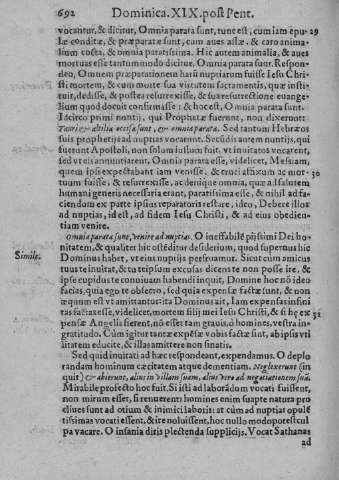 692 Dominica.XIX.post Pent.
vocantur, & dicitur, Omnia parata sunt, tunc est, cum iam epu- 29
læ conditæ, & præparatæ sunt, cum aues assæ, & caro anima-
lium cocta, & omnia paratissima. Hîc autem animalia, & aues
mortuas esse tantummodo dicitur, Omnia parata sunt. Respon-
deo, Omnem præparationem harū nuptiarum fuisse Iesu Chri-
sti mortem, & cum morte sua vis itē sacramentis, quæ insti-
tuit, dedisse, & postea resurrexisse, & sua resurrectione euange-
lium quod docuit confirmasse: & hoc est, Omnia parata sunt.
Idcirco primi nuntij, qui Prophetæ fuerunt, non dixerunt
Tauri & altilia occisa sunt, & omnia parata. Sed tantum Hebræos
suis prophetijs ad nuptias vocarunt. Secūdis autem nuntijs, qui
fuerunt Apostoli, non solum iussum fuit, vt inuitatos vocarent,
sed vt eis annuntiarent, Omnia parata esse, videlicet, Messiam,
quem ipsi expectabant iam venisse, & cruci affixum ac mor- 30
tuum fuisse, & resurrexisse, ac denique omnia, quæ ad salutem
humani generis necessaria erant, paratissima esse, & nihil ad fa-
ciendum ex parte ipsius reparatoris restare, ideo, Debere illos
ad nuptias, id est, ad fidem Iesu Christi, & ad eius obedien-
tiam venire.
Omnia parata sunt, venite ad nuptias. O ineffabilē pijssimi Dei bo-
nitatem, & qualiter hîc ostēditur desiderium, quod supernus hic
Simile. Dominus habet, vt eius nuptijs perfruamur. Sicut cum amicus
tuus te inuitat, & tu teipsum excusas dicens te non posse ire, &
ipse cupidus te conuiuam habendi inquit, Domine hoc nō ideo
facias, quia ego te obsecro, sed quia expensæ factæ sunt, & non
æquum est vt amittantur: ita Dominus ait, Iam expensas infini-
tas factas esse, videlicet, mortem filij mei Iesu Christi, & si hę ex 31
pensæ Angelis fierent, nō esset tam grauis, ô homines, vestra in-
gratitudo. Cūm igitur tantæ expēsæ vobis factæ sunt, ab ipsis vti
litatem educite, & illas amittere non sinatis.
Sed quid inuitati ad hæc respondeant, expendamus. O deplo
randam hominum cæcitatem atque dementiam. Neglexerunt (in
quit) & abierunt, alius in villam suam, alius verò ad negotiationem suā.
Mirabile profecto hoc fuit. Si isti ad laborādum vocati fuissent,
non mirum esset, si renuerent: homines enim suapte natura pro
cliues sunt ad otium & inimici laboris: at cùm ad nuptias opulē
tissimas vocati essent, & ire noluissent, hoc nullo modo potest cul
pa vacare. O insania diris plectenda supplicijs. Vocat Sathanas
ad